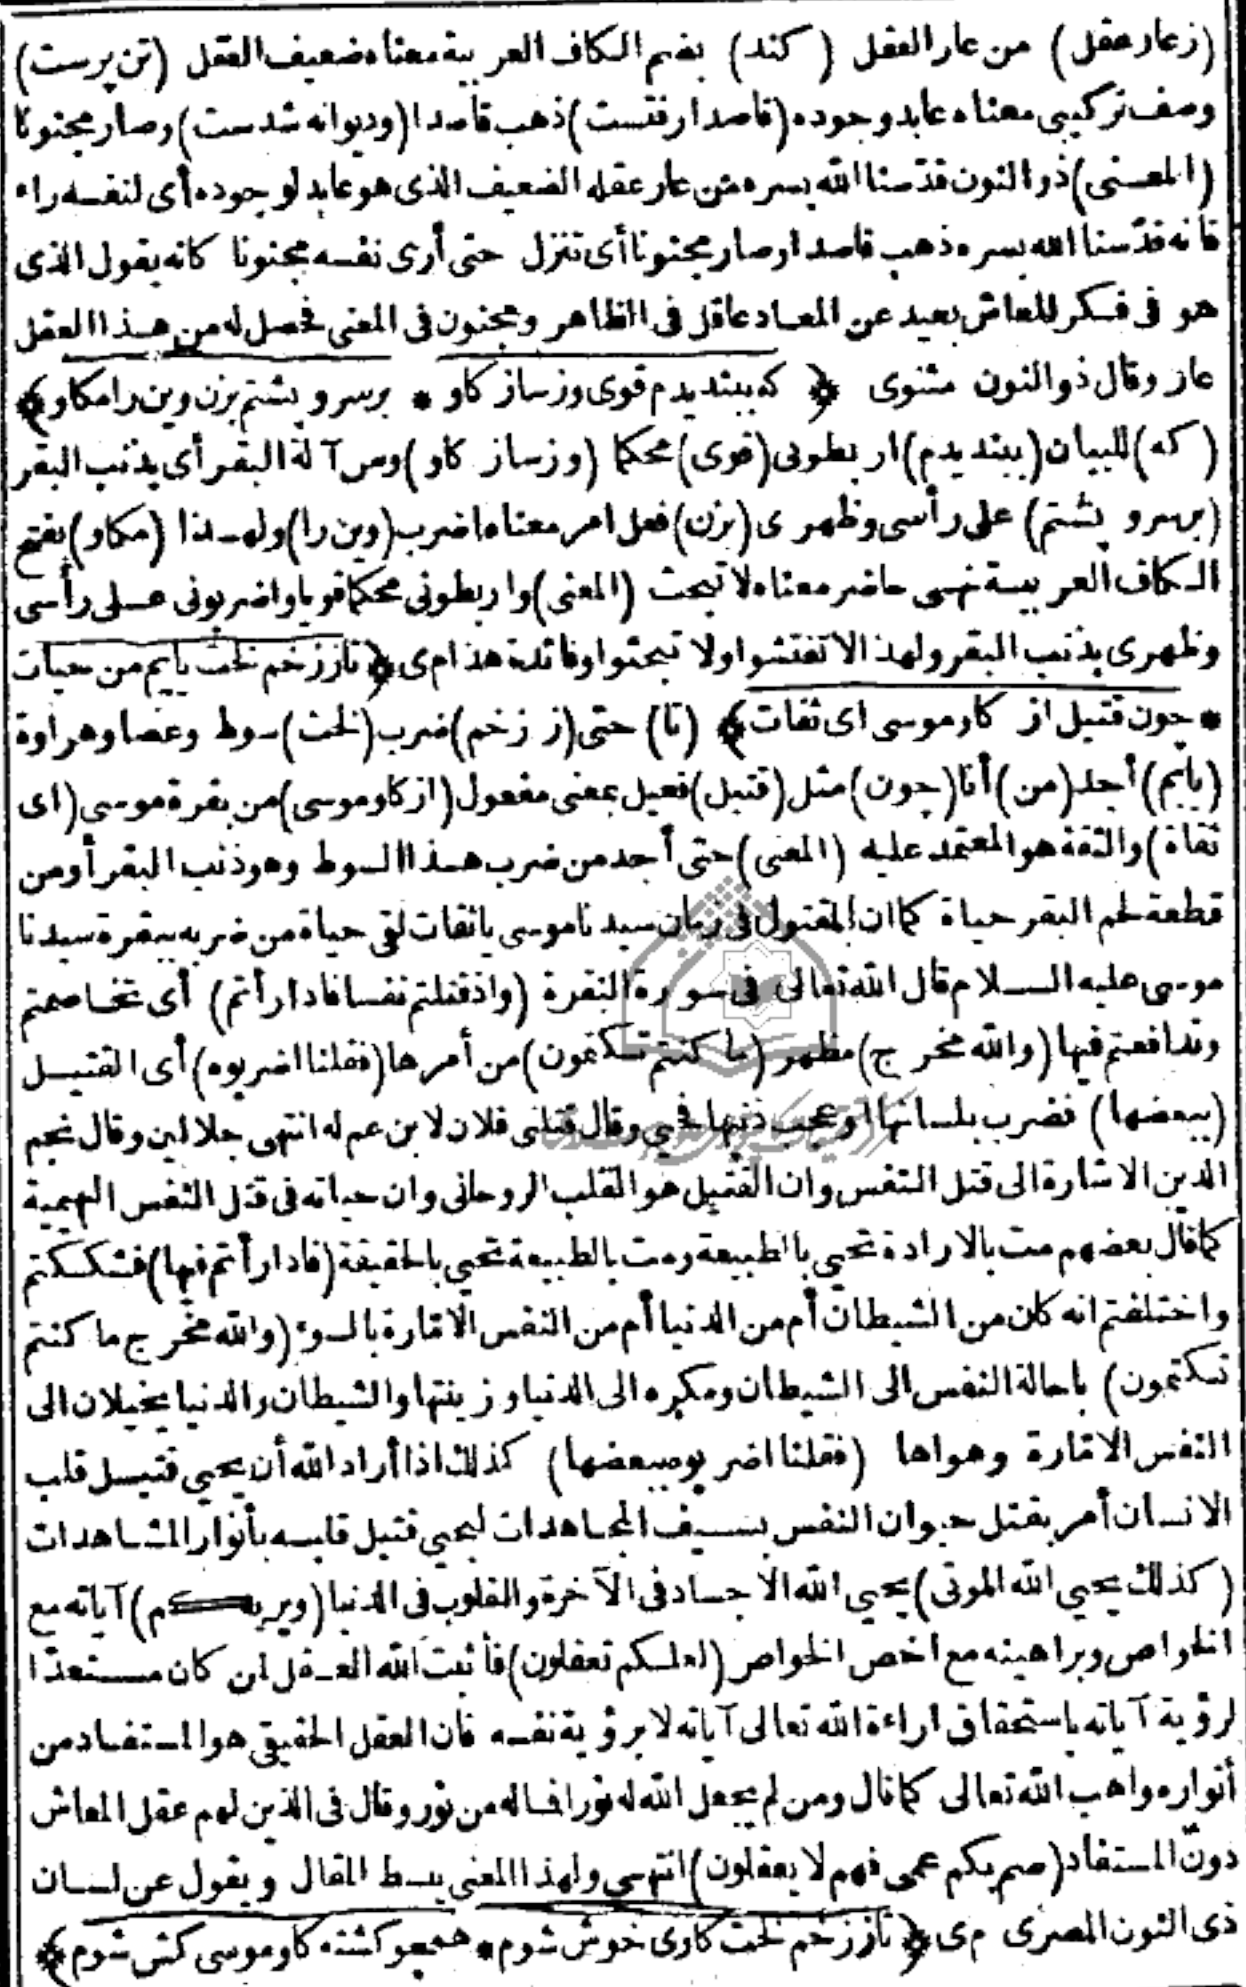 (زعار عقل) من عار العقل (كند) بضم الكاف العربية معناه ضعيف العقل (تن پرست)
وصف تركيبى معناه عابد وجوده (قاصدا رفتست) ذهب قاصدا (وديوانه شدست) وصار مجنونا
(المعنى) ذو النون قدّسنا الله بسره من عار عقله الضعيف الذى هو عابد لوجوده أى لنفسه راء
فانه قدّسنا الله بسره ذهب قاصدا وصار مجنونا أى تنزل حتى أرى نفسه مجنونا كانه يقول الذى
هو فى فكر المعاش بعيد عن المعاد عاقل فى الظاهر ومجنون فى المعنى فحصل له من هذا العقل
عار وقال ذو النون مثنوى ﴿ كه ببنديدم قوى وز ساز كاو * بر سر و پشتم بزن وين را مكاو ﴾
(كه) للبيان (ببنديدم) اربطونى (قوى) محكما (وز ساز كاو) ومن آلة البقر أى بذنب البقر
(بر سر و پشتم) على رأسى وظهرى (بزن) فعل امر معناه اضرب (وين را) ولهذا (مكاو) بفتح
الكاف العربية نهى حاضر معناه لا تبحث (المعنى) واربطونى محكما قويا واضربونى على رأسى
وظهرى بذنب البقر ولهذا لا تفتشوا ولا تبحثوا وفائدة هذا م ى ﴿ تا ز زخم لخت يابم من حيات
* چون قتيل از كاو موسى اى ثقات ﴾ (تا) حتى (ز زخم) ضرب (لخت) سوط وعصا وهراوة
(يابم) أجد (من) أنا (چون) مثل (قتيل) فعيل بمعنى مفعول (از كاو موسى) من بقرة موسى (اى
ثقاة) والثقة هو المعتمد عليه (المعنى) حتى أجد من ضرب هذا السوط وهو ذنب البقر أو من
قطعة لحم البقر حياة كما ان المقتول فى زمان سيدنا موسى ياثقات لقى حياة من ضربه ببقرة سيدنا
موسى عليه السلام قال الله تعالى فى سورة البقرة (واذ قتلتم نفسا فادارأتم) أى تخاصمتم
وتدافعتم فيها (والله مخرج) مظهر (ما كنتم تكتمون) من أمرها (فقلنا اضربوه) أى القتيل
(ببعضها) فضرب بلسانها أو عجب ذنبها فحيى وقال قتلنى فلان لابن عم له انتهى جلالين وقال نجم
الدين الاشارة الى قتل النفس وان القتيل هو القلب الروحانى وان حياته فى قتل النفس البهيمية
كما قال بعضهم مت بالارادة تحيى بالطبيعة ومت بالطبيعة تحيى بالحقيقة (فادارأتم فيها) فشككتم
واختلفتم انه كان من الشيطان أم من الدنيا أم من النفس الامّارة بالسوء (والله مخرج ما كنتم
تكتمون) باحالة النفس الى الشيطان ومكره الى الدنيا وزينتها والشيطان والدنيا يحيلان الى
النفس الامّارة وهواها (فقلنا اضربوه ببعضها) كذلك اذا أراد الله أن يحيى قتيل قلب
الانسان أمر بقتل حيوان النفس بسيف المجاهدات ليحيى قتيل قلبه بأنوار المشاهدات
(كذلك يحيى الله الموتى) يحيى الله الاجساد فى الآخرة والقلوب فى الدنيا (ويريكم) آياته مع
الخواص وبراهينه مع اخص الخواص (لعلكم تعقلون) فأثبت الله العقل لمن كان مستعدّا
لرؤية آياته باستحقاق اراءة الله تعالى آياته لا برؤية نفسه فان العقل الحقيقى هو المستفاد من
أنواره واهب الله تعالى كما قال ومن لم يجعل الله له نورا فما له من نور وقال فى الذين لهم عقل المعاش
دون المستفاد (صم بكم عمى فهم لا يعقلون) انتهى ولهذا المعنى يبسط المقال ويقول عن لسان
ذى النون المصرى م ى ﴿ تا ز زخم لخت كاوى خوش شوم * همچو كشته كاو موسى كش شوم ﴾